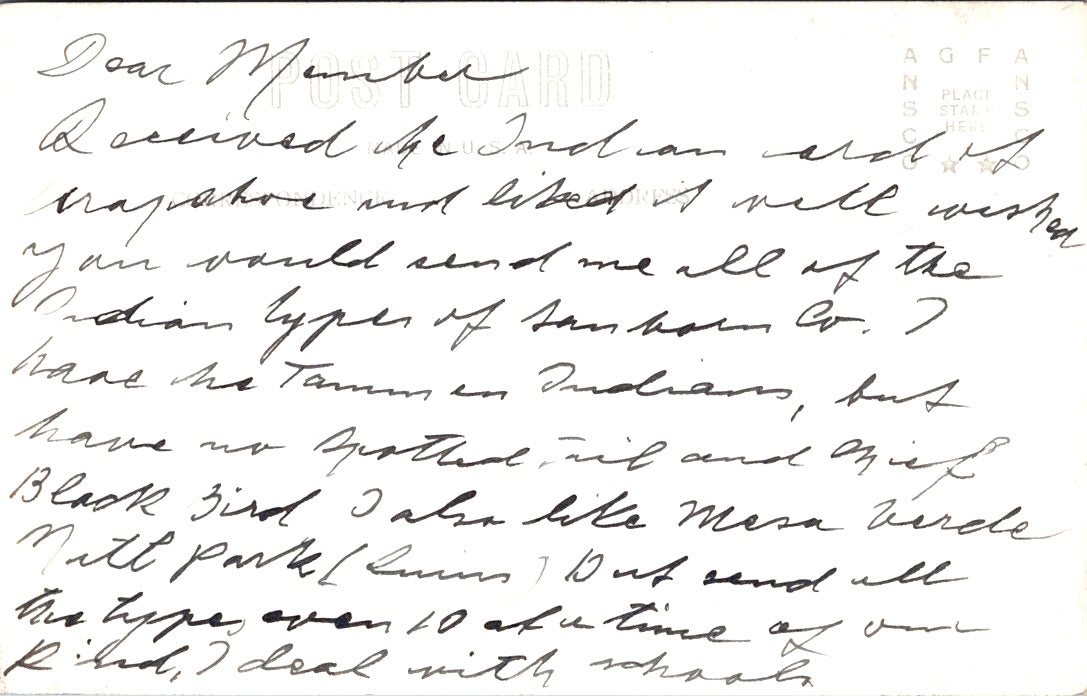 POST CARD
MADE IN U.S.A.
CORRESPONDENCE ADDRESS
AGFA ANSCO
PLACE
STAMP
HERE
AGFA ANSCO
Dear Member
Received the Indian card of
arapahoe and liked it well wished
you would send me all of the
Indian types of Sanborn Co. I
have the Tammen Indians, but
have no Spotted Tail and Chief
Black Bird I also like Mesa Verde
Natl Park (Ruins) But send all
the types, even 10 at a time of one
Kind, I deal with schools